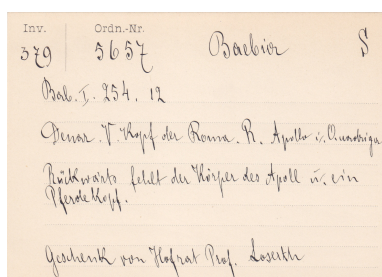 Inv. Ordn.-Nr.
379 5657 Baebia S
Bab. I. 254. 12
Denar V. Kopf der Roma. R. Apollo i. Quadriga
Rückwärts fehlt der Körper des Apoll u. ein
Pferdekopf.
Geschenk von Hofrat Prof. Loserth